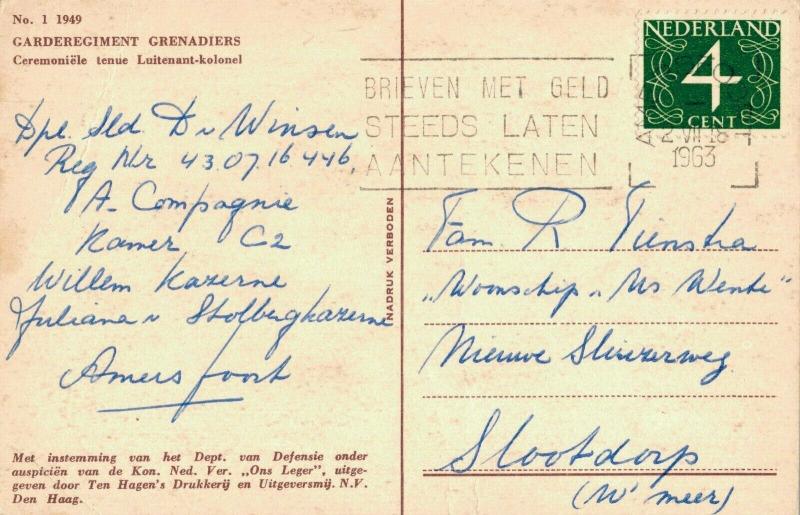 No. 1 1949
GARDEREGIMENT GRENADIERS
Ceremoniële tenue Luitenant-kolonel
Dpl Sld D v Winsen
Reg Nr 43.07.16.446.
A- Compagnie
Kamer C2
Willem Kazerne
Juliana v Stolbergkazerne
Amersfoort
Met instemming van het Dept. van Defensie onder
auspiciën van de Kon. Ned. Ver. „Ons Leger”, uitge-
geven door Ten Hagen's Drukkerij en Uitgeversmij. N.V.
Den Haag.
NADRUK VERBODEN
BRIEVEN MET GELD
STEEDS LATEN
AANTEKENEN
2 VII 18
1963
NEDERLAND
4
CENT
Fam. R Tienstra
„Woonschip „
Nieuwe Sluizerweg
Slootdorp
(W' meer)